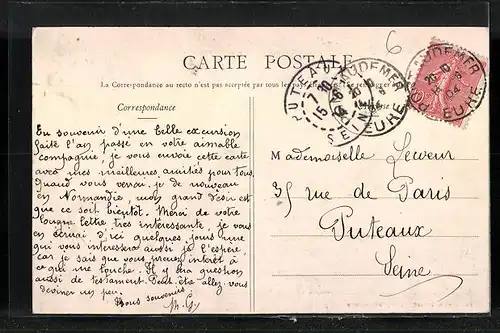 6
CARTE POSTALE
La Correspondance au recto n'est pas acceptée par tous les pays
Correspondance
PUTEAUX
SEINE
7 30
15
PONT-AUDEMER
EURE
20 10
15 - 8
04
En souvenir d'une belle excursion
faite l'an passé en votre aimable
compagnie, je vous envoie cette carte
avec mes meilleures amitiés pour tous.
Quand vous verrai-je de nouveau
en Normandie, mon grand désir est
que ce soit bientôt. Merci de votre
longue lettre très intéressante, je vous
en écrirai d'ici quelques jours une
qui vous intéressera aussi je l'espère,
car je sais que vous prenez intérêt à
ce qui me touche. Il y sera question
aussi de testament. Peut-être allez-vous
deviner un peu.
Bons souvenirs
M. G
Mademoiselle Lecoeur
35 rue de Paris
Puteaux
Seine